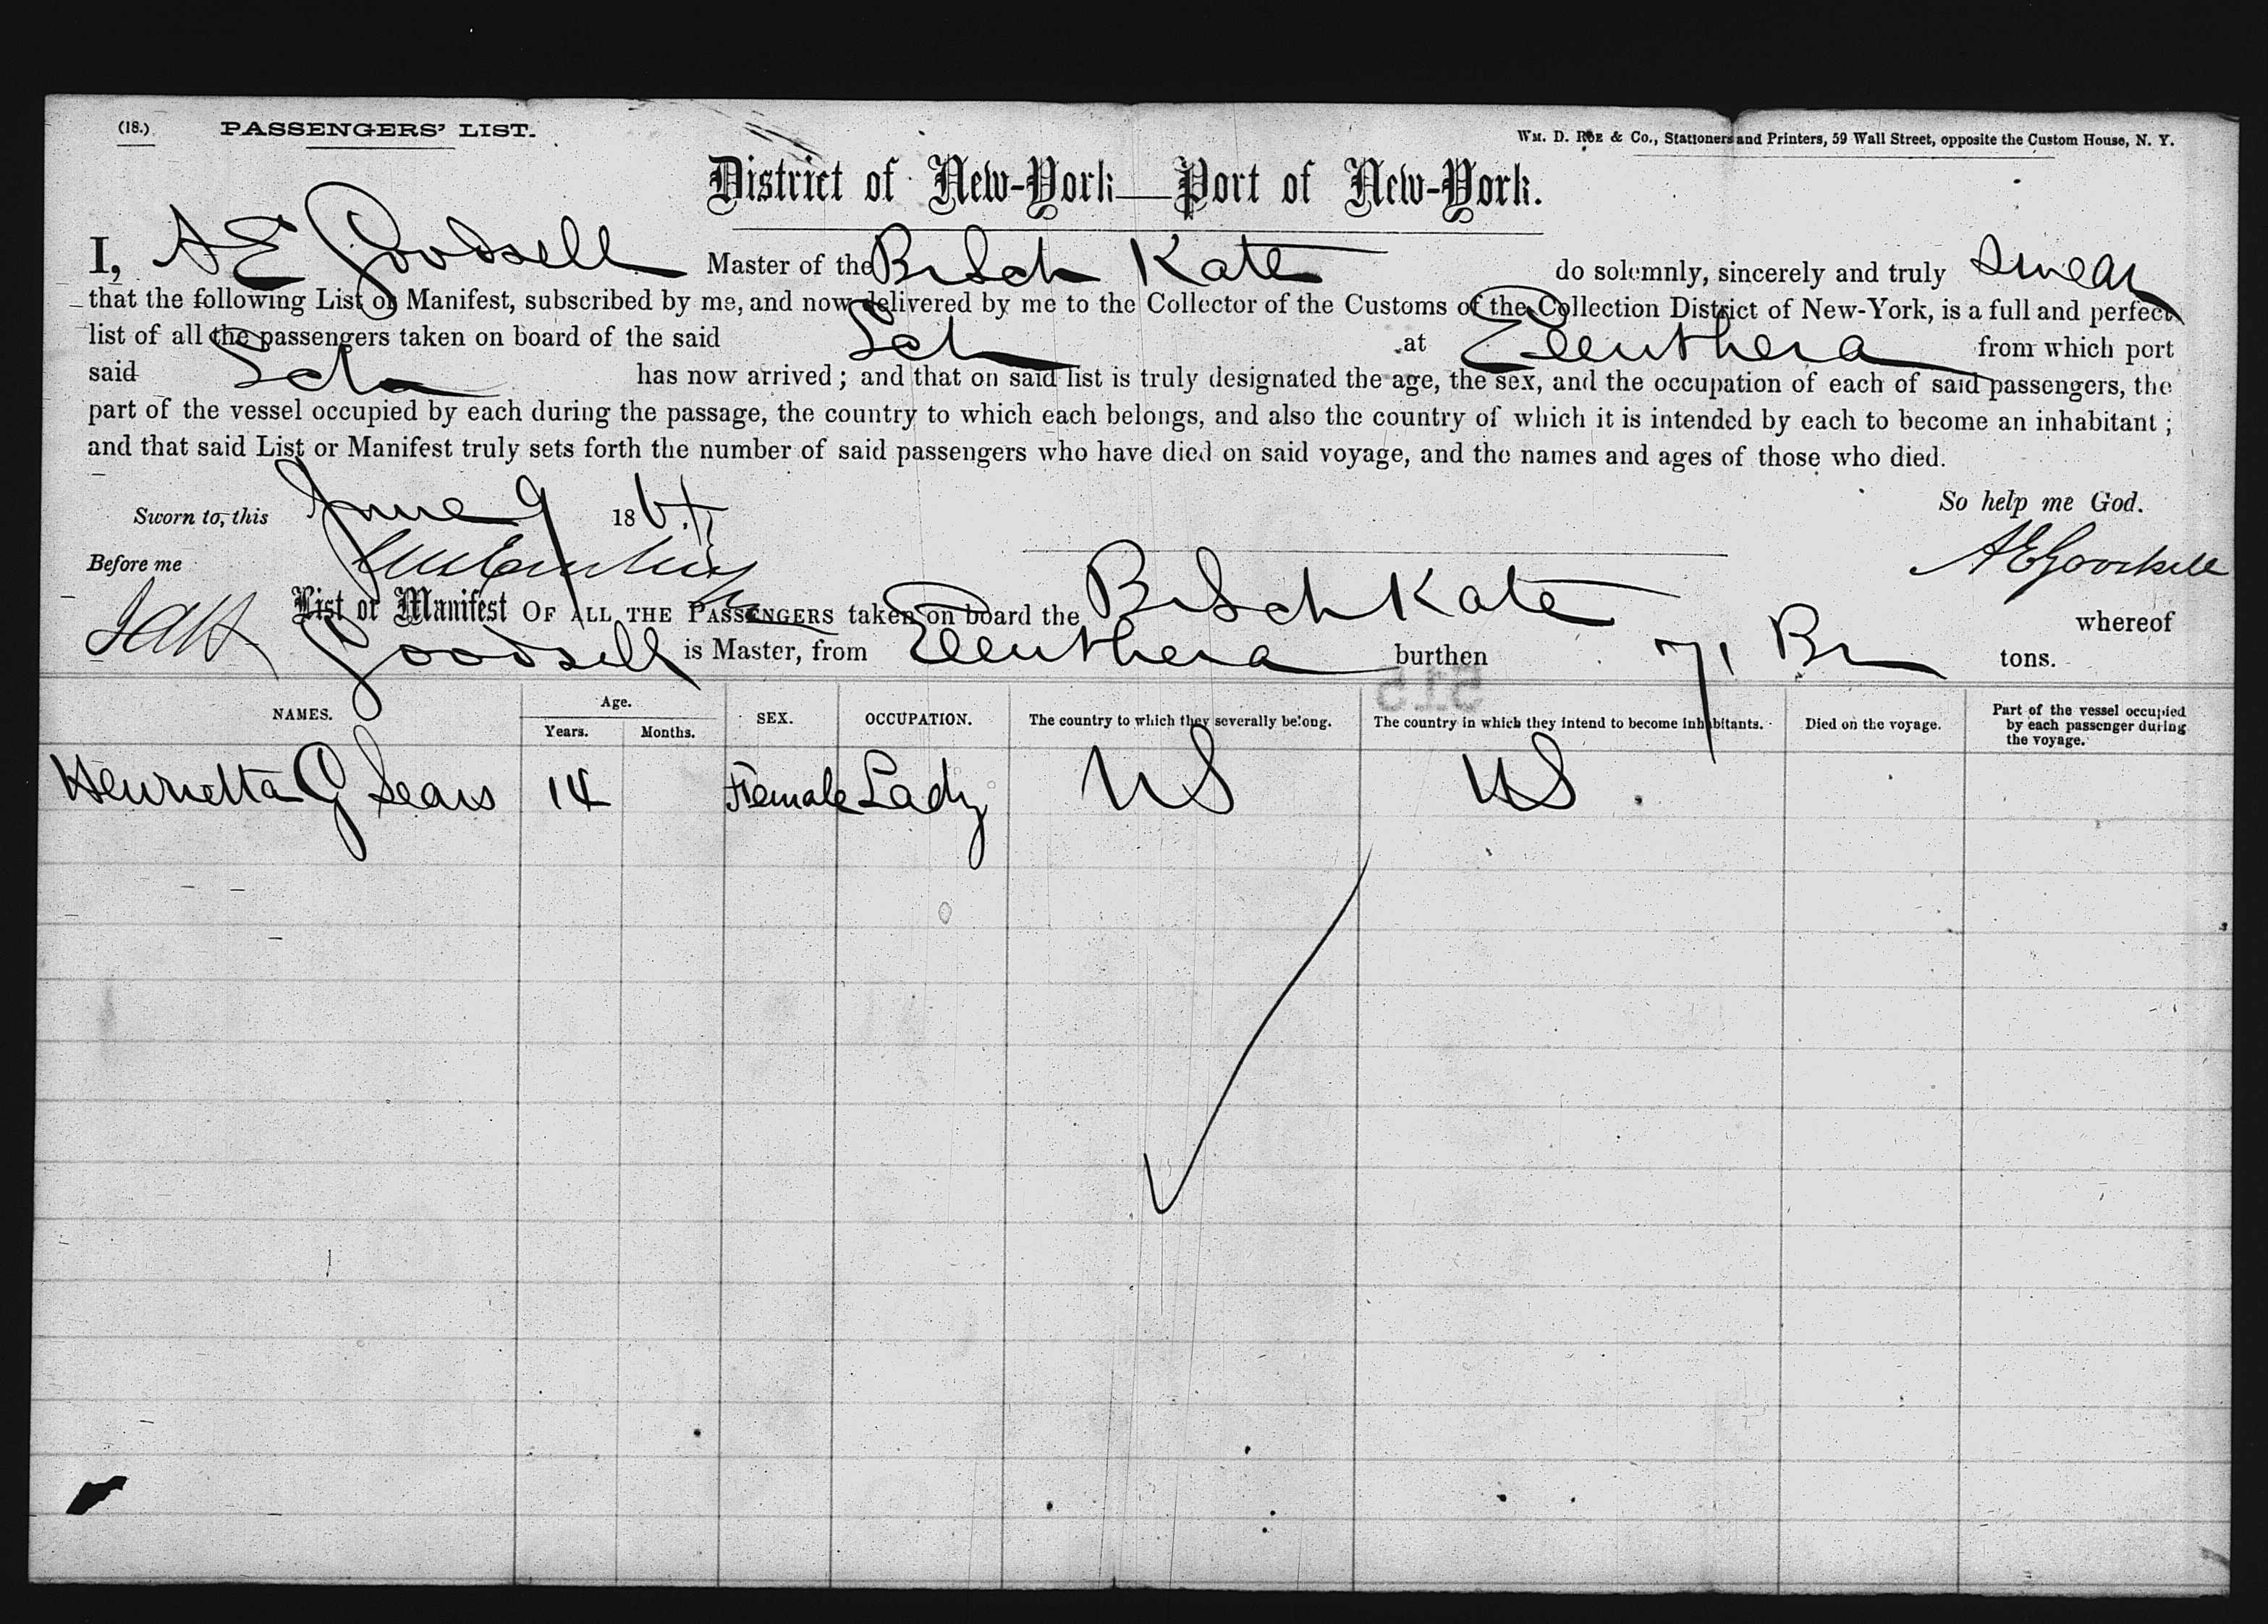 (18.) PASSENGERS' LIST.
WM. D. ROE & Co., Stationers and Printers, 59 Wall Street, opposite the Custom House, N. Y.
District of New-York—Port of New-York.
I, A E Goodsell Master of the Br Sch Kate do solemnly, sincerely and truly swear
that the following List or Manifest, subscribed by me, and now delivered by me to the Collector of the Customs of the Collection District of New-York, is a full and perfect
list of all the passengers taken on board of the said Sch at Eleuthera from which port
said Sch has now arrived; and that on said list is truly designated the age, the sex, and the occupation of each of said passengers, the
part of the vessel occupied by each during the passage, the country to which each belongs, and also the country of which it is intended by each to become an inhabitant;
and that said List or Manifest truly sets forth the number of said passengers who have died on said voyage, and the names and ages of those who died.
So help me God.
Sworn to, this June 9 186
A E Goodsell
Before me
List or Manifest OF ALL THE PASSENGERS taken on board the Br Sch Kate whereof
Goodsell is Master, from Eleuthera burthen 71 Br tons.
515
NAMES. Age. Years. Months. SEX. OCCUPATION. The country to which they severally belong. The country in which they intend to become inhabitants. Died on the voyage. Part of the vessel occupied by each passenger during the voyage.
Henrietta G Sears 14 Female Lady US US